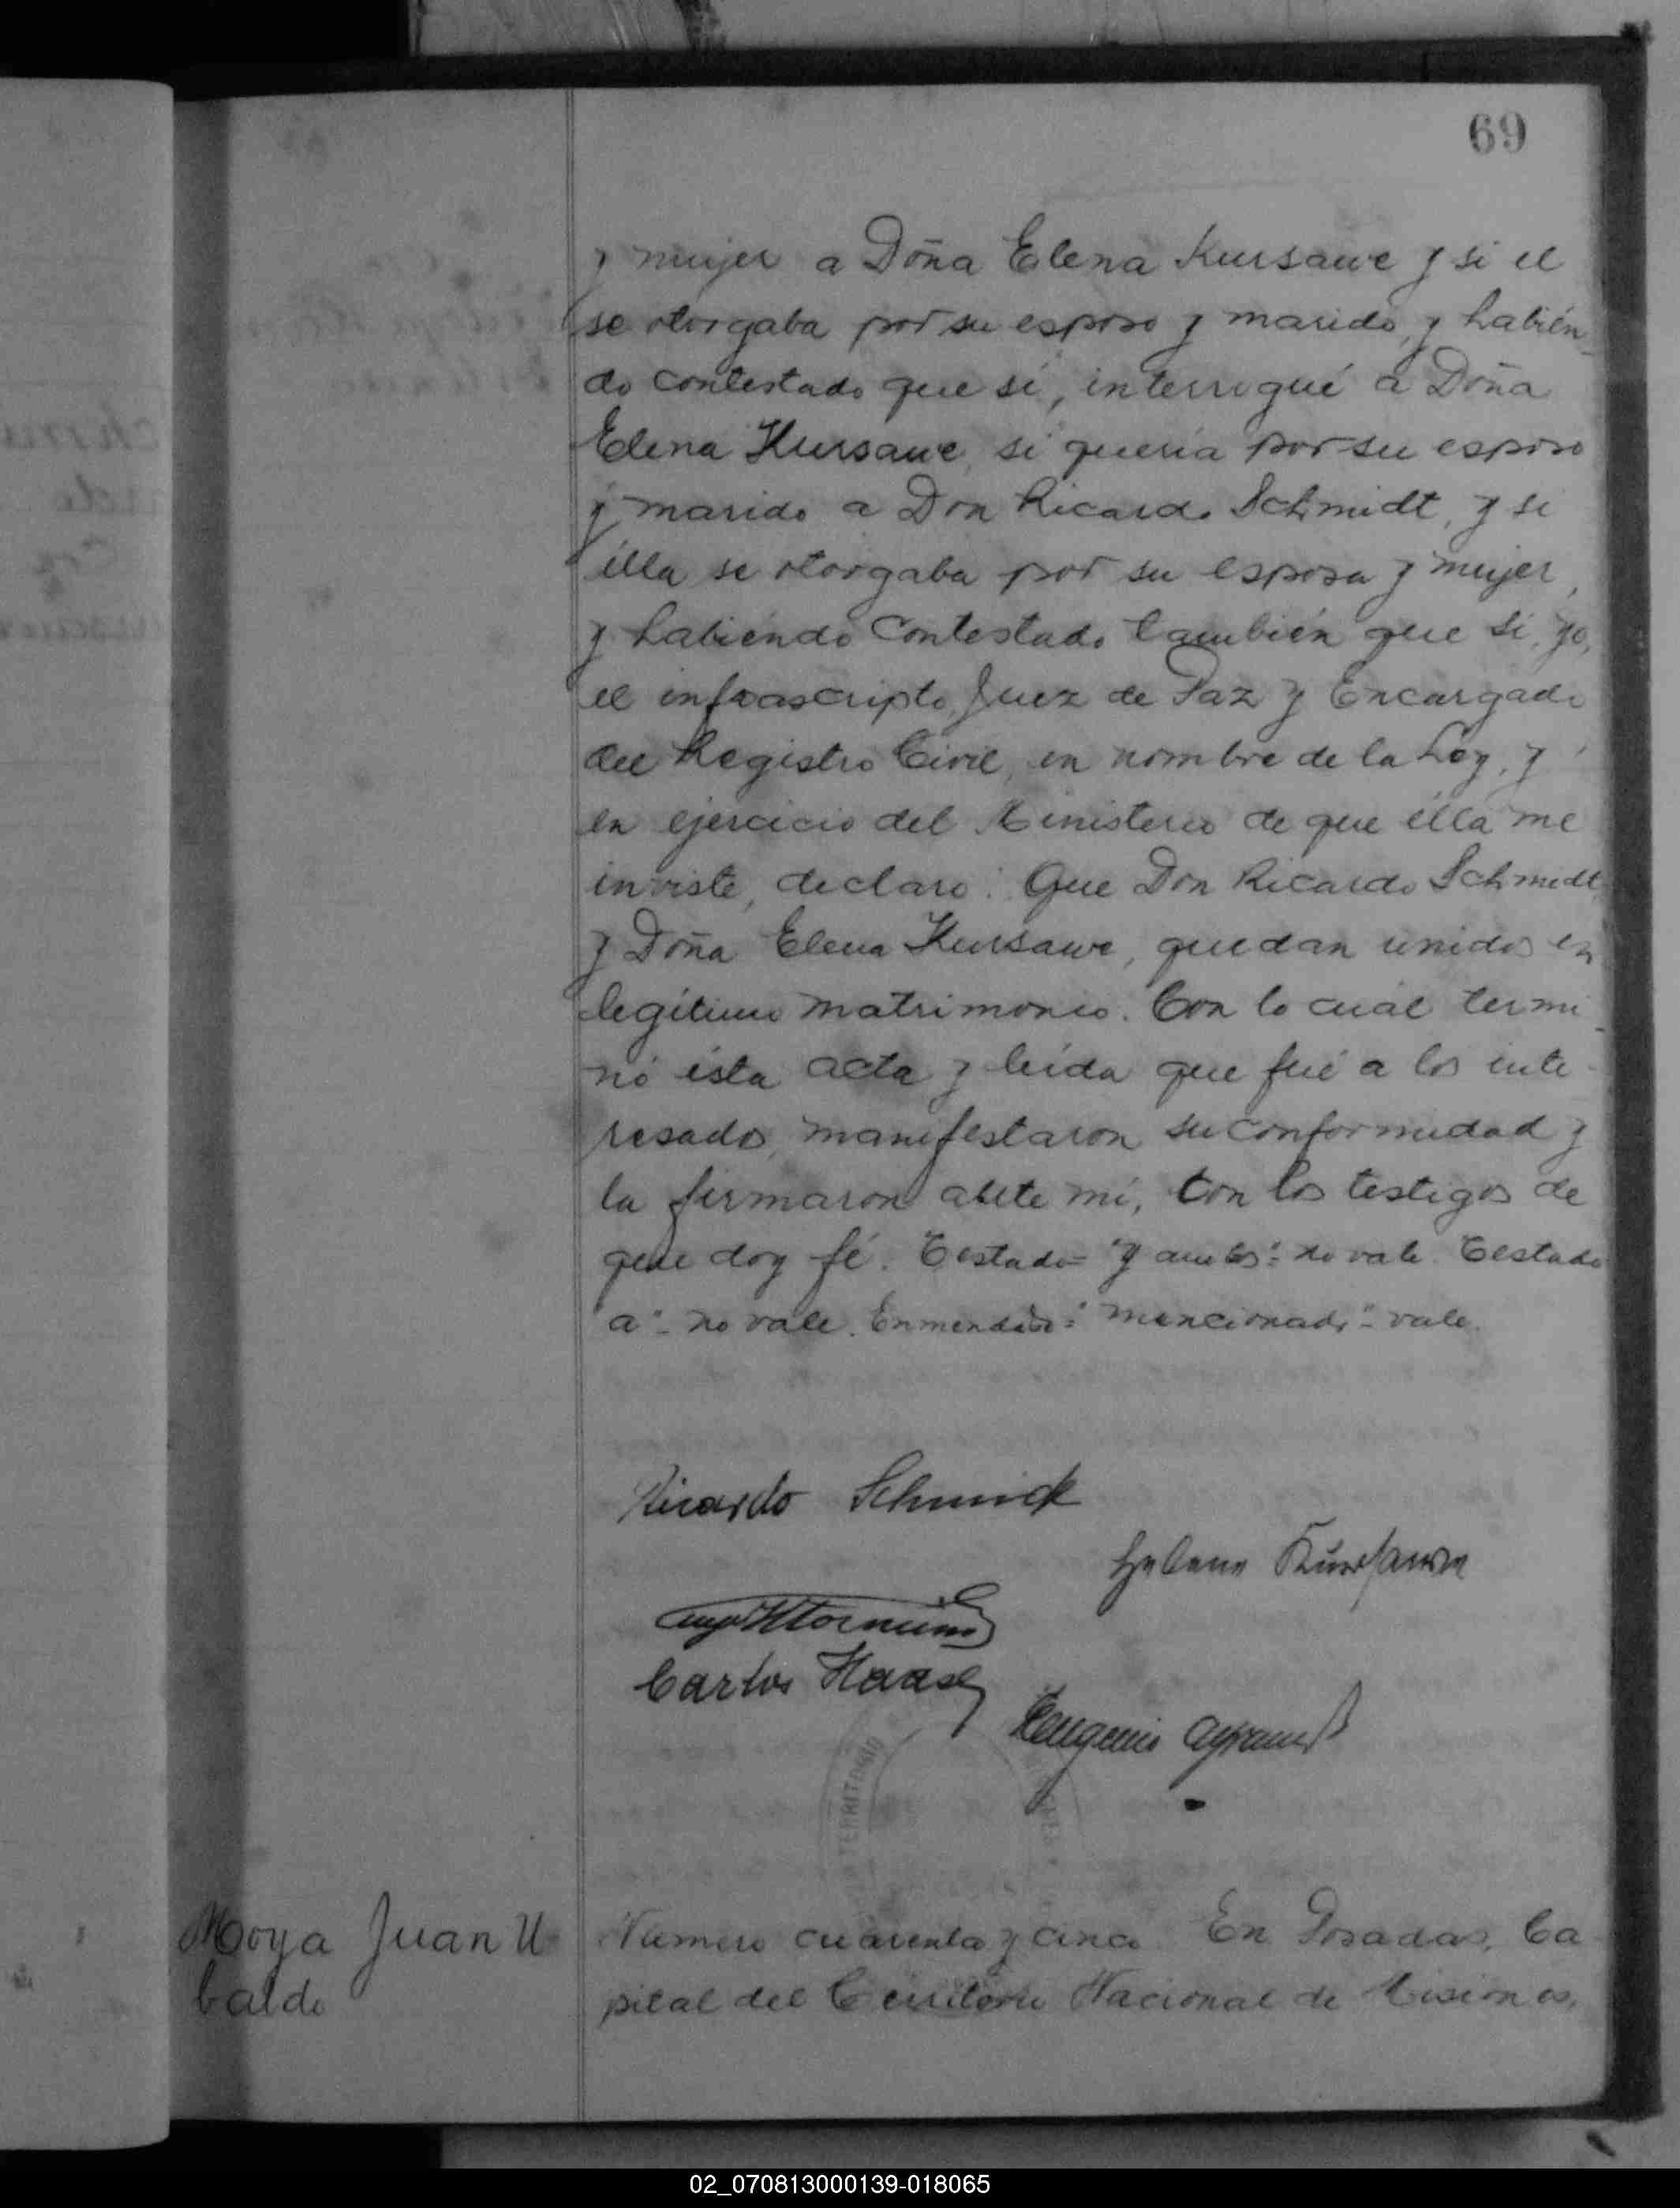 69
y mujer a Doña Elena Kursawe y si el
se otorgaba por su esposo y marido, y habién-
do contestado que sí, interrogué a Doña
Elena Kursawe, si quería por su esposo
y marido a Don Ricardo Schmidt, y si
élla se otorgaba por su esposa y mujer,
y habiendo contestado también que sí, yo,
el infrascripto Juez de Paz y Encargado
del Registro Civil, en nombre de la Ley, y
en ejercicio del Ministerio de que élla me
inviste, declaro: Que Don Ricardo Schmidt
y Doña Elena Kursawe, quedan unidos en
legítimo matrimonio. Con lo cuál termi-
nó ésta acta y leída que fué a los inte-
resados, manifestaron su conformidad y
la firmaron ante mí, con los testigos de
que doy fé. Testado= "y ambos"= no vale. Testado
"a"= no vale. Enmendado= "mencionado"= vale.
Ricardo Schmidt
Helene Kursawe
Carlos Haase
Eugenio
TERRITORIO
Moya Juan U
baldo
Número cuarenta y cinco En Posadas, Ca-
pital del Territorio Nacional de Misiones,
02_070813000139-018065